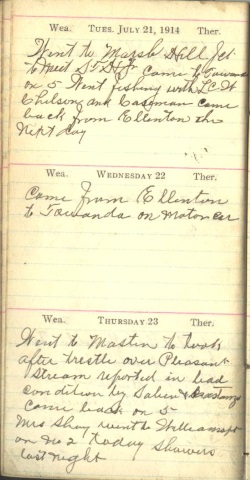 Wea. TUES. JULY 21, 1914 Ther.
Went to Marsh Hill Jct
to meet came to Towanda
on 5 Went fishing with
Chilson and Cassman came
back from Ellenton the
next day
Wea. WEDNESDAY 22 Ther.
Came from Ellenton
to Towanda on motor car
Wea. THURSDAY 23 Ther.
Went to Masten to look
after trestle over Pleasant
Stream reported in bad
condition by
Came back on 5
Mrs Shay went to Williamspt
on No 2 today Showers
last night